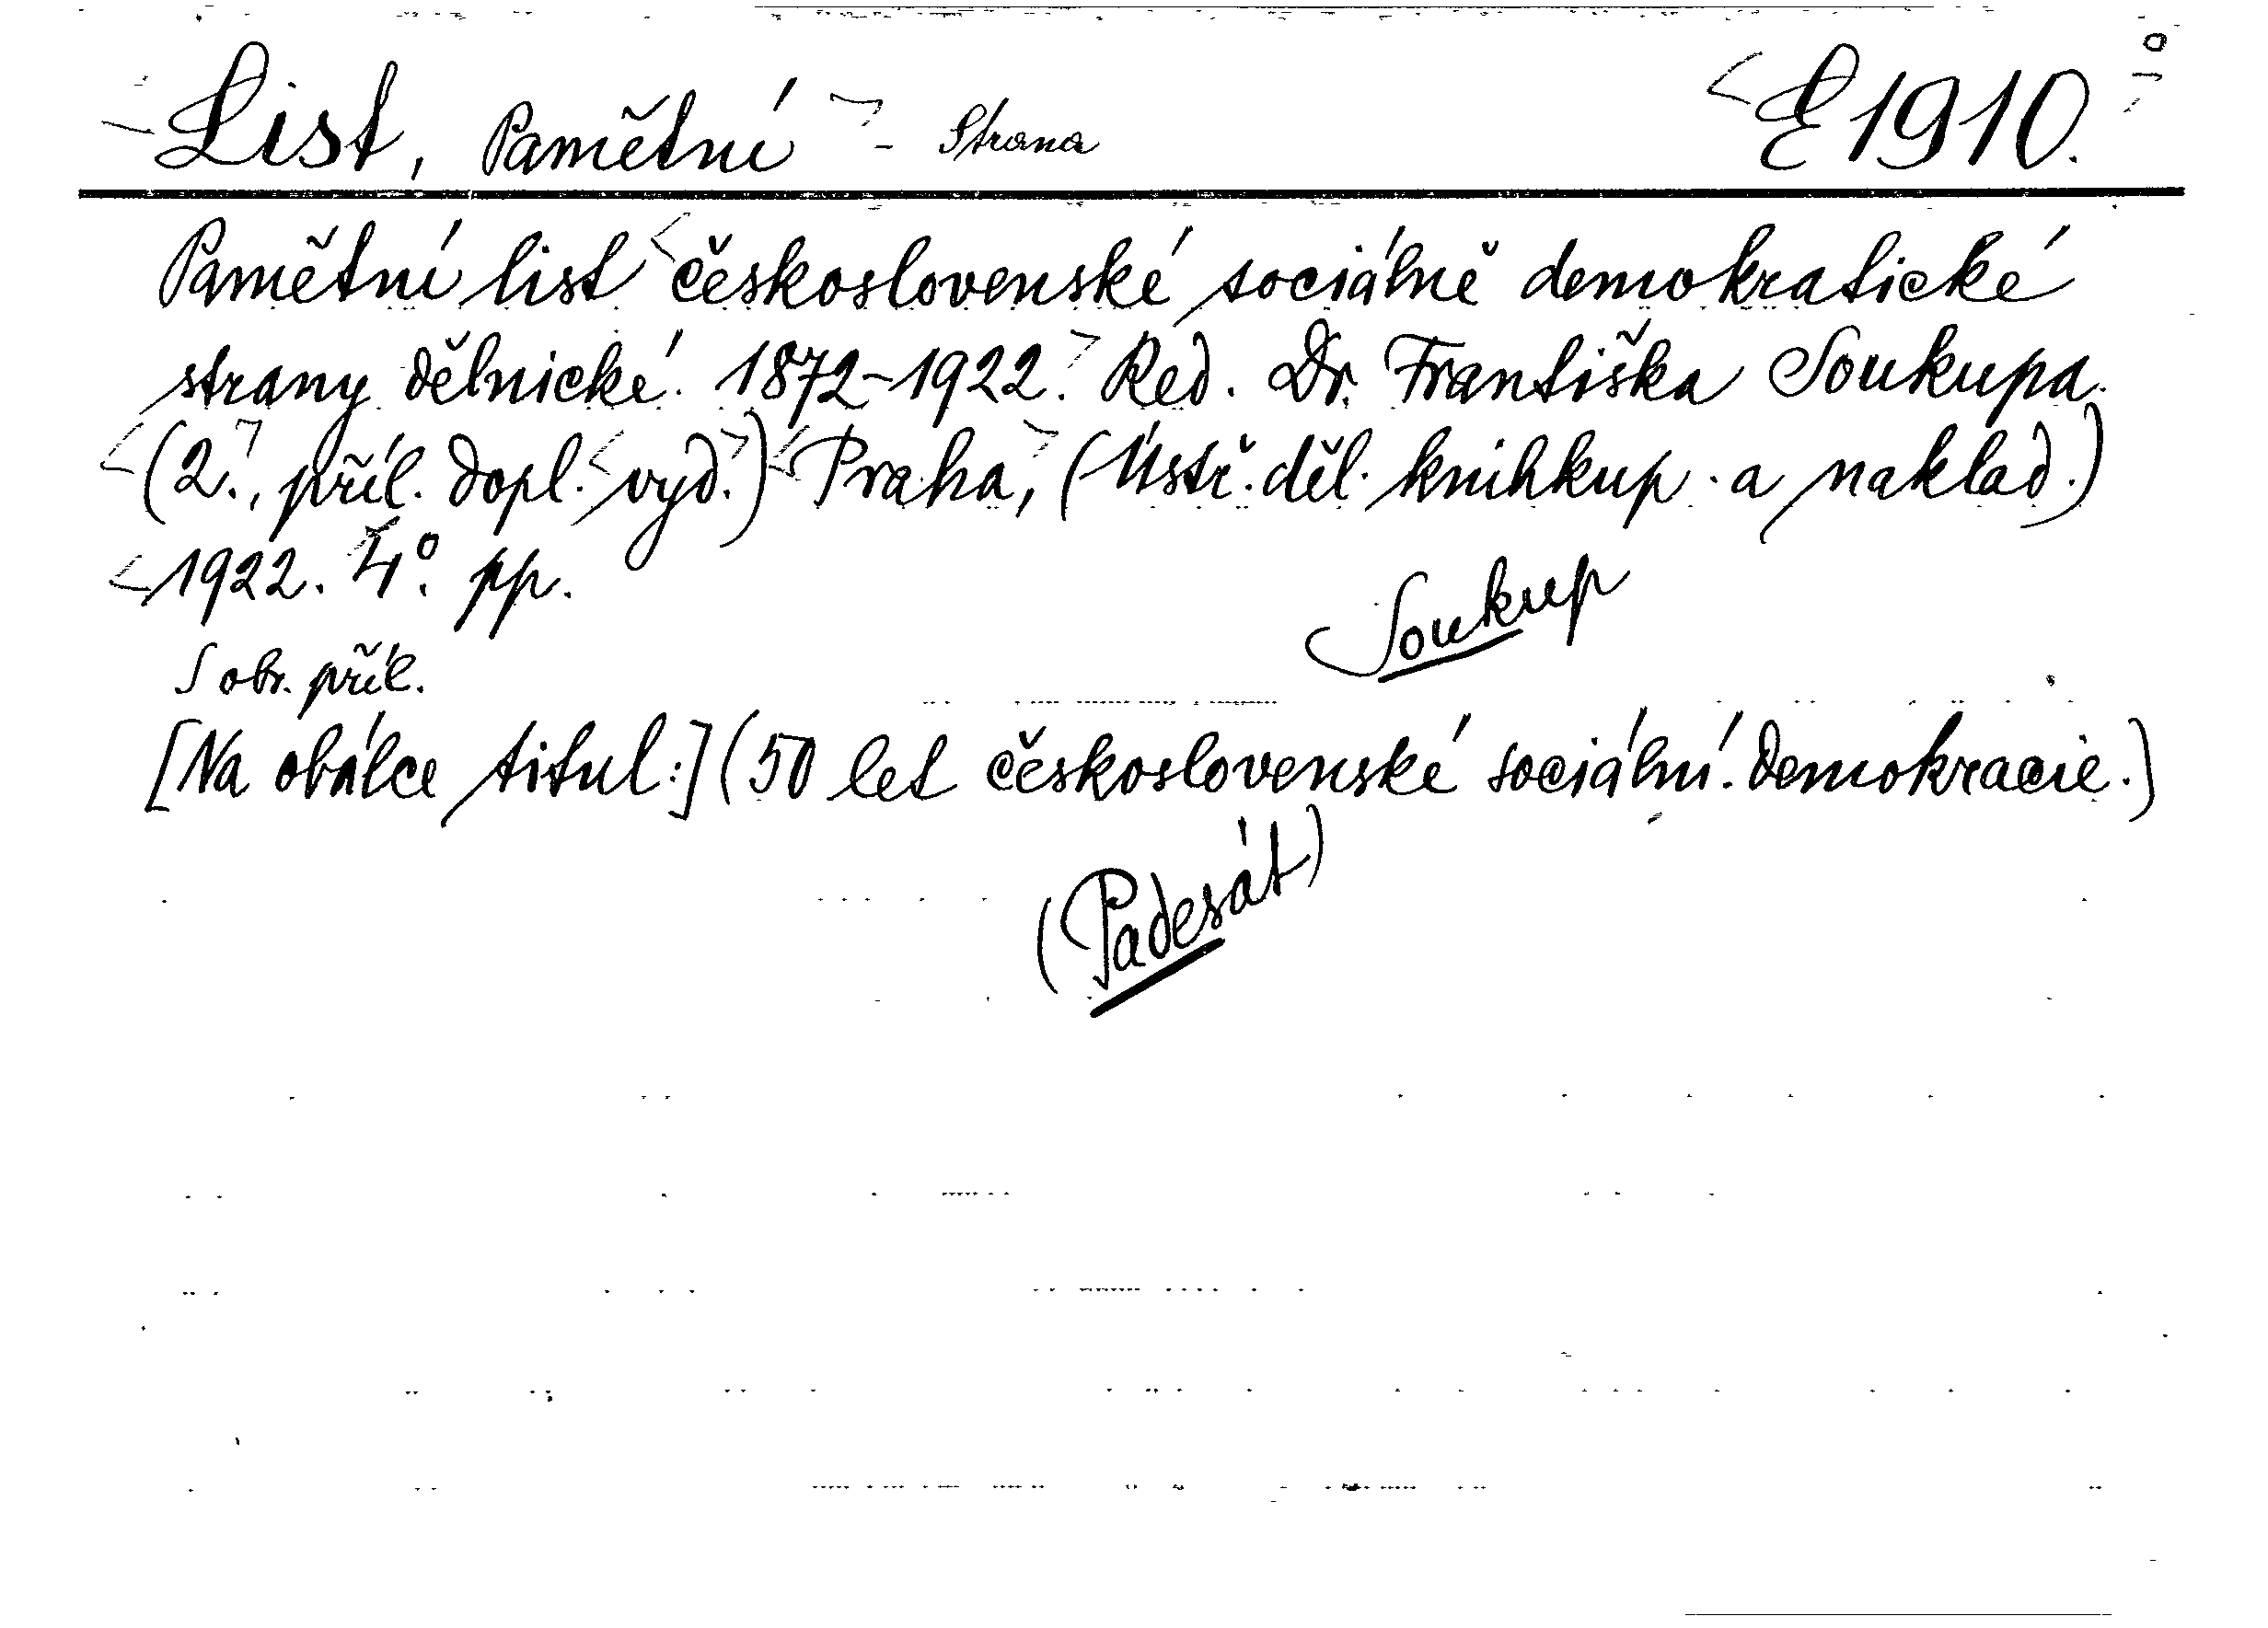 List, Pamětní - Strana E 1910.
Pamětní list československé sociálně demokratické
strany dělnické. 1872-1922. Red. Dr. Františka Soukupa.
(2., příl. dopl. vyd.) Praha, (Ústř. děl. knihkup. a naklad.)
1922. 4°. pp.
Soukup
S obr. příl.
[Na obálce titul:] (50 let československé sociální demokracie.)
(Padesát)